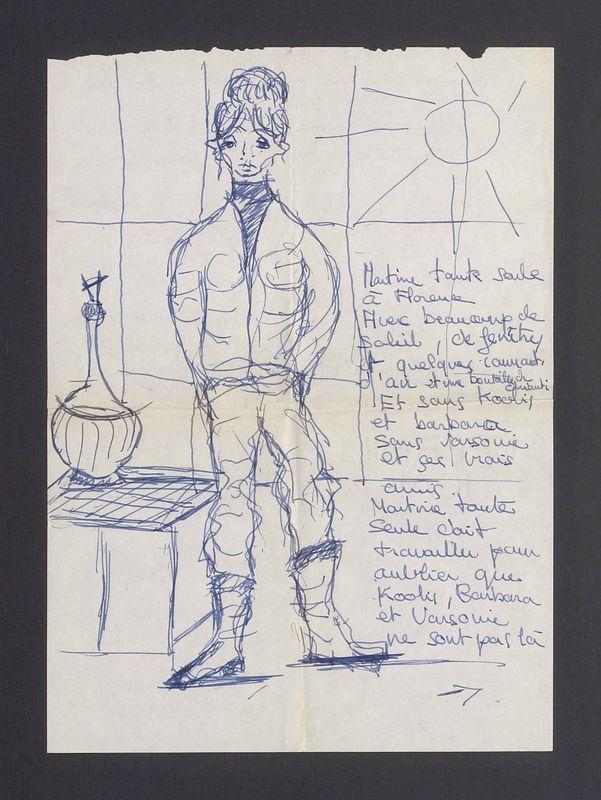 Martine toute seule
à Florence
Avec beaucoup de
soleil, de fenêtres
et quelques courants
d'air et une bouteille de chianti
Et sans Koolis
et barbara
Sans Varsovie
et ses vrais
amis.
Martine toute
Seule doit
travailler pour
oublier que
Koolis, Barbara
et Varsovie
ne sont pas là